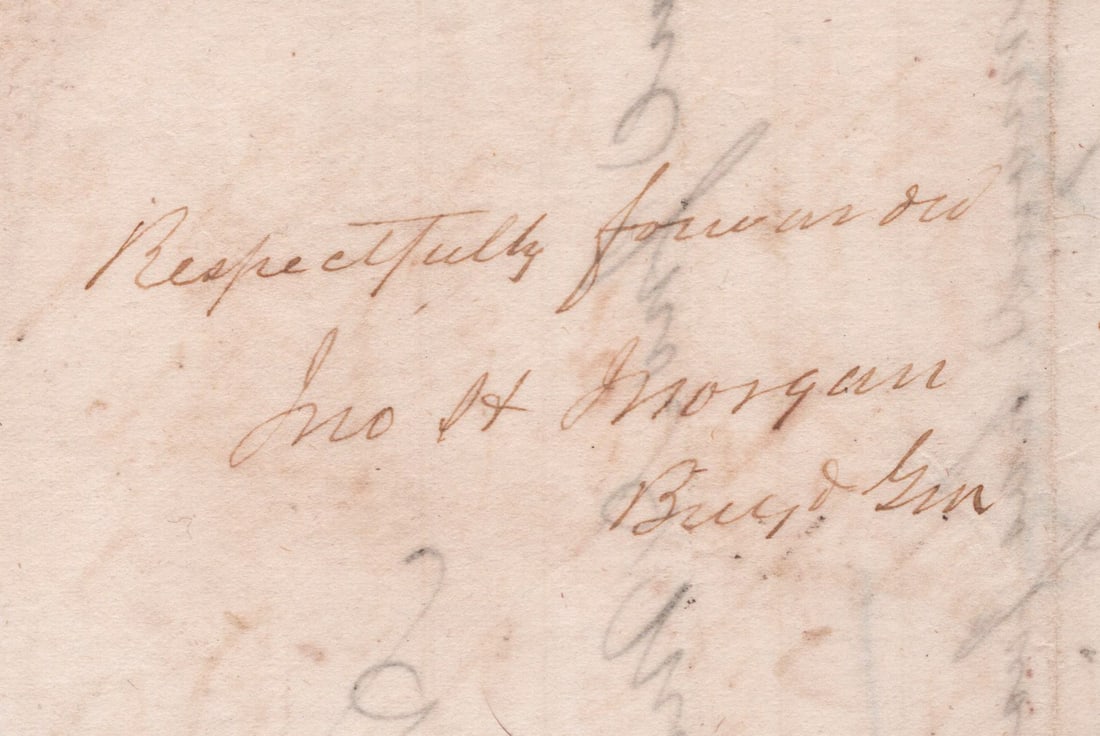 Respectfully forwarded
Jno H Morgan
Brig Gen